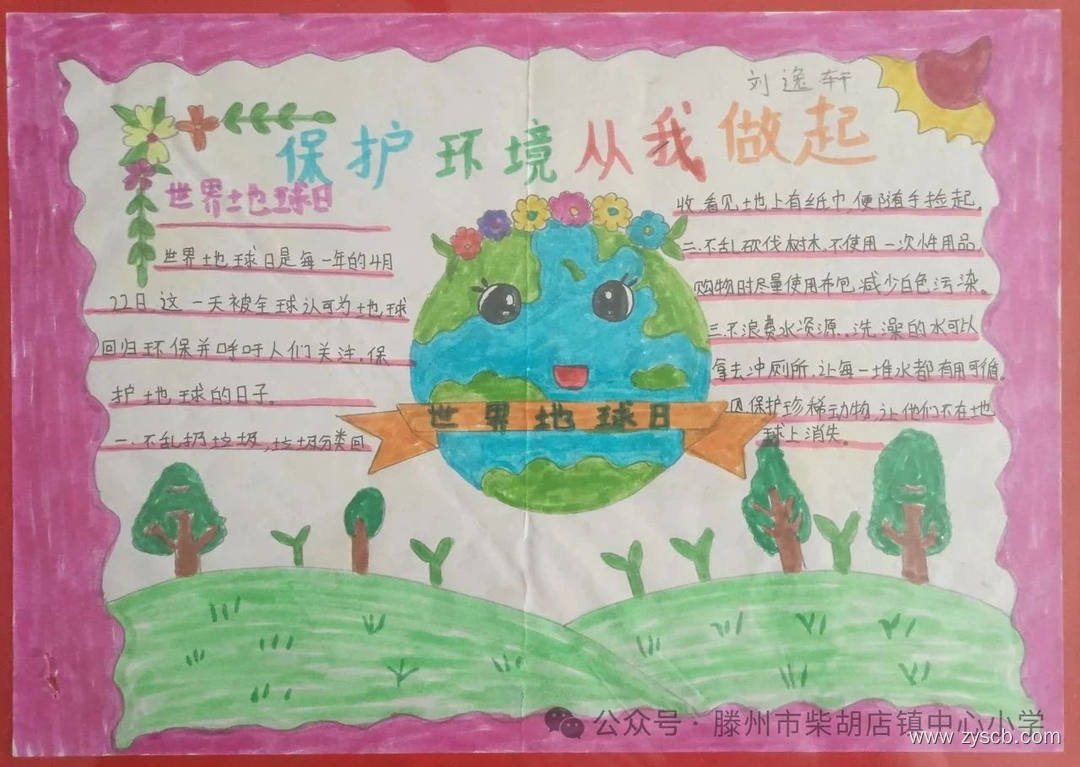 刘逸轩
保护环境从我做起
世界地球日
世界地球日是每一年的4月
22日.这一天被全球认可为地球
回归环保并呼吁人们关注.保
护地球的日子。
一.不乱扔垃圾,垃圾分类回
收.看见地上有纸巾,便随手捡起。
二.不乱砍伐树木.不使用一次性用品,
购物时尽量使用布包.减少白色污染。
三.不浪费水资源.洗澡的水可以
拿去冲厕所.让每一堆水都有用可循。
四.保护珍稀动物.让他们不在地
球上消失。
世界地球日
公众号·滕州市柴胡店镇中心小学
www.zyscb.com